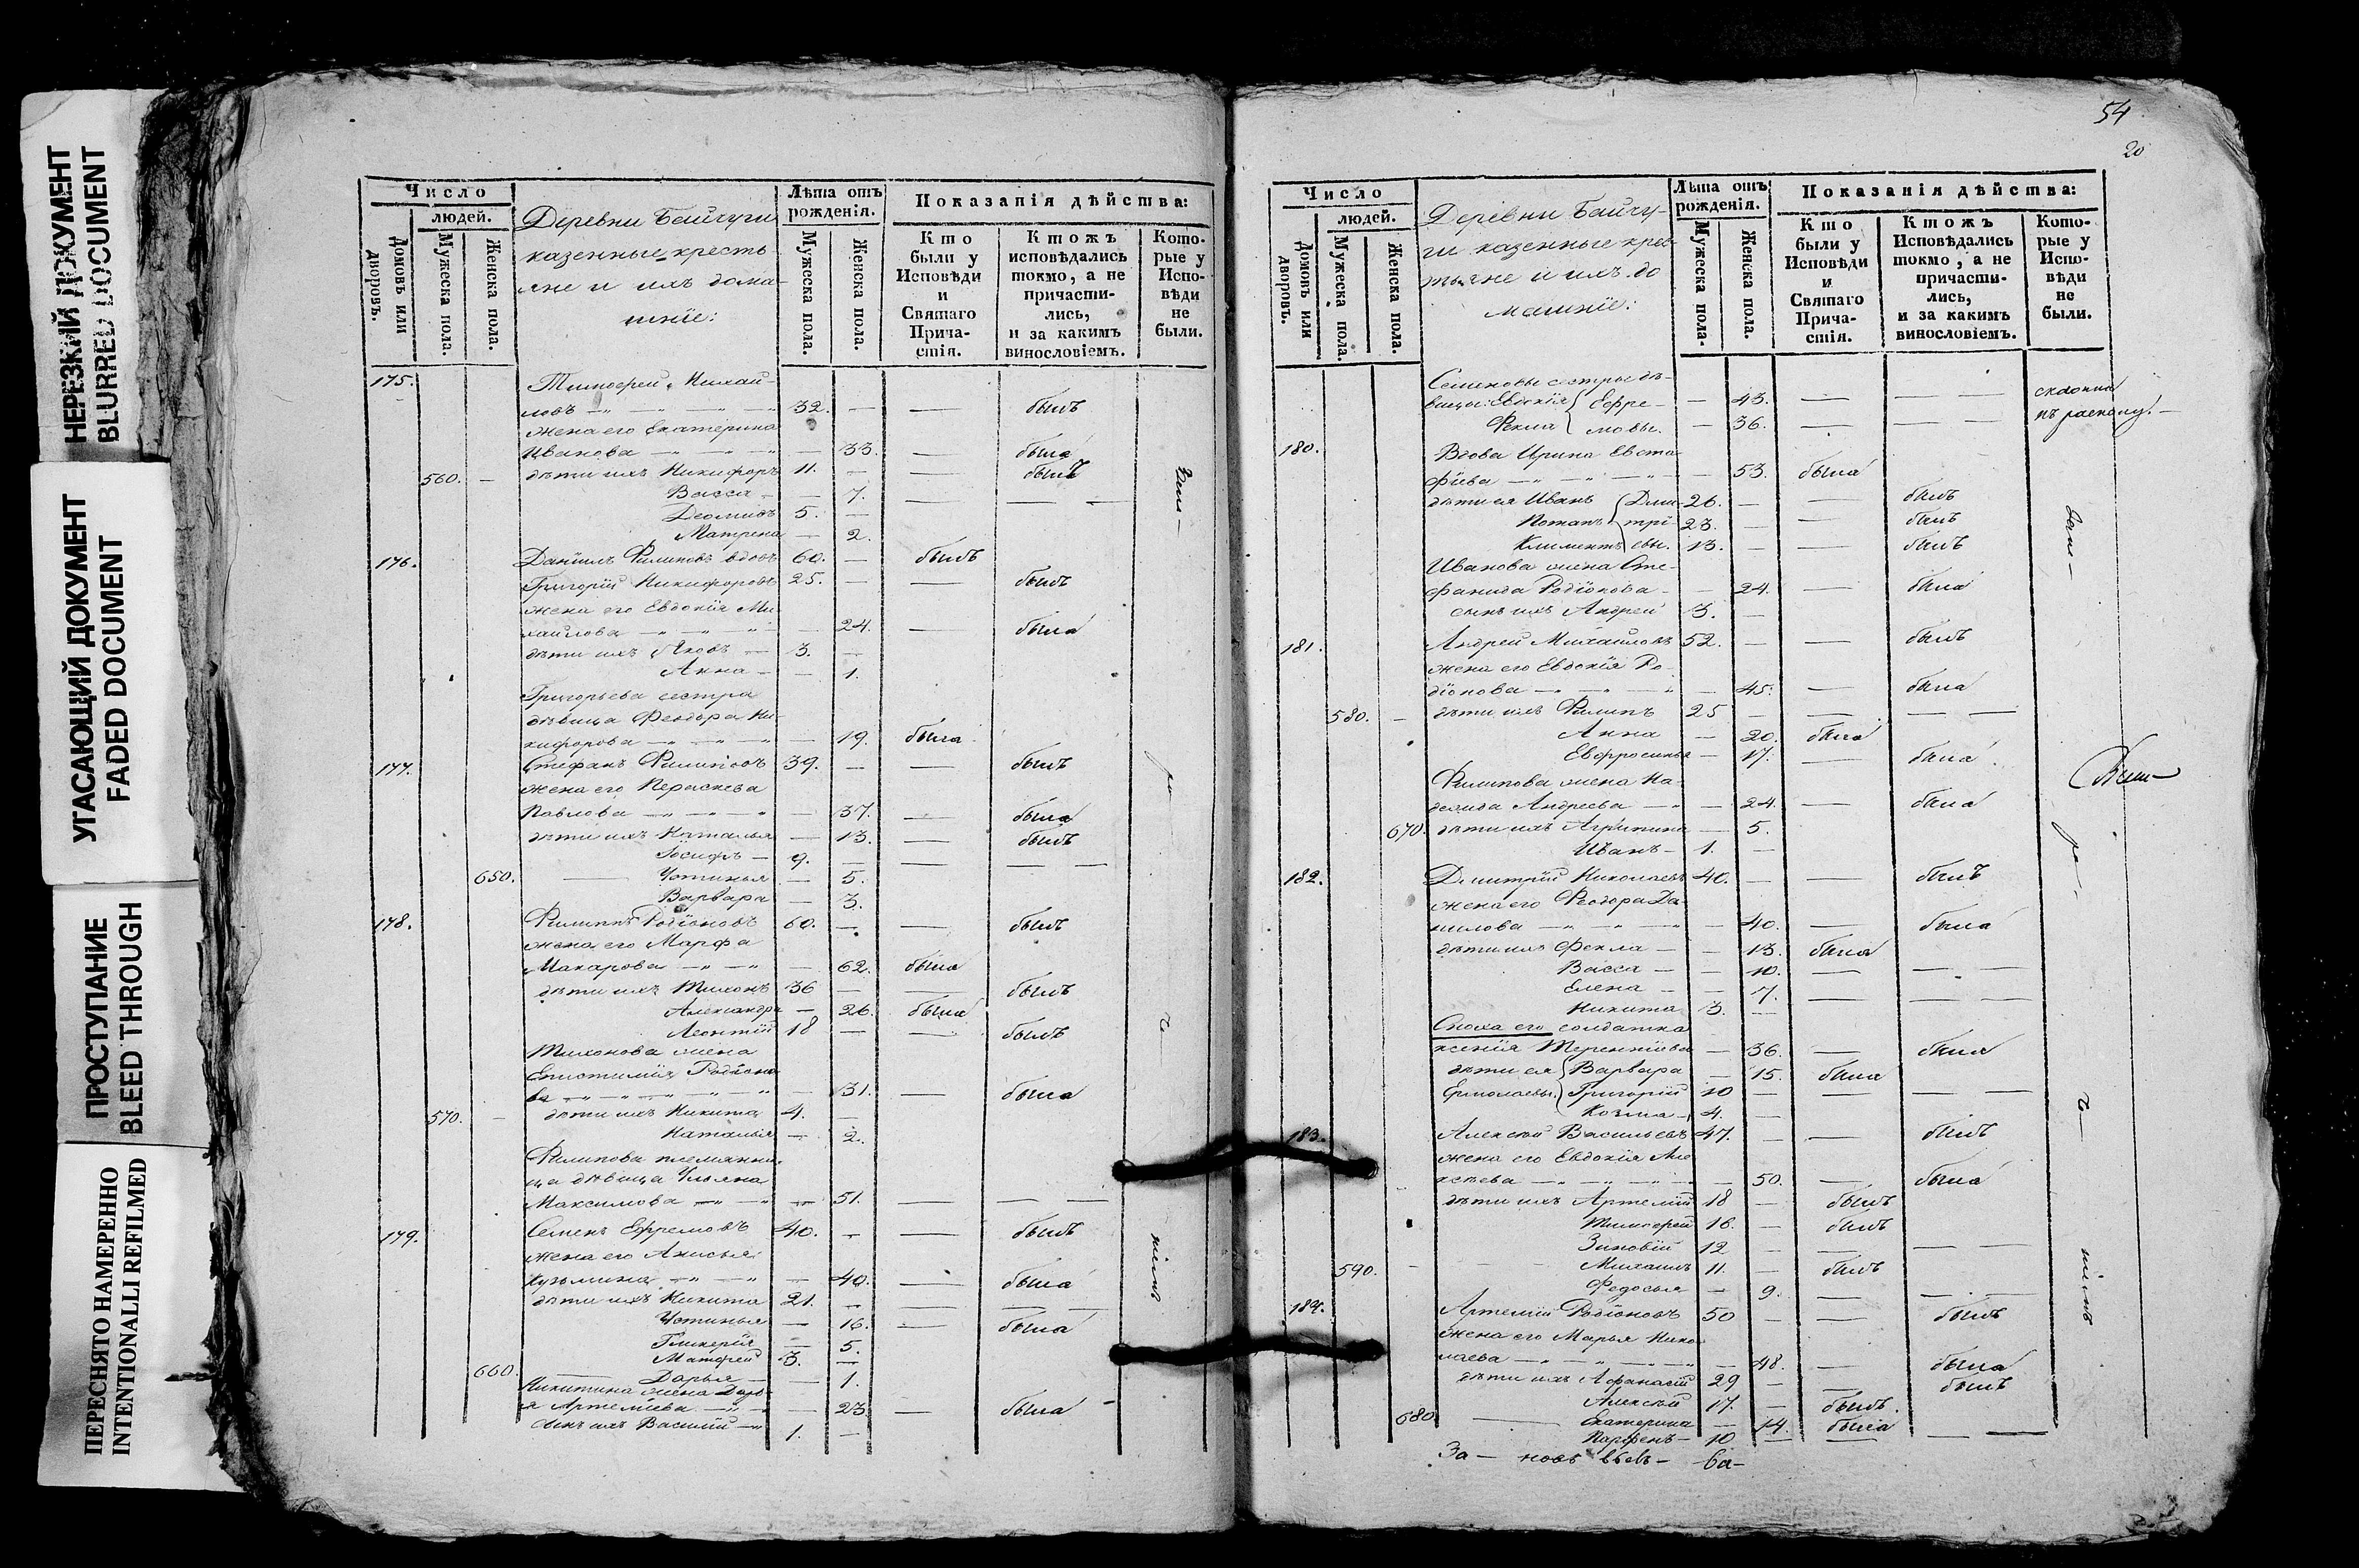 НЕРЕЗКИЙ ДОКУМЕНТ
BLURRED DOCUMENT
УГАСАЮЩИЙ ДОКУМЕНТ
FADED DOCUMENT
ПРОСТУПАНИЕ
BLEED THROUGH
ПЕРЕСНЯТО НАМЕРЕННО
INTENTIONALLI REFILMED
Число
людей.
Домовъ или дворовъ.
Мужеска пола.
Женска пола.
Деревни Байчуги
казенные кресть
яне и ихъ дома-
шнїе:
Лѣта отъ рожденія.
Мужеска пола.
Женска пола.
Показанія дѣйства:
Кто были у Исповѣди и Святаго Прича-стія.
Ктожъ исповѣдались токмо, а не причасти-лись, и за какимъ винословіемъ.
Кото-рые у Испо-вѣди не были.
175. Тимофей Михай-
ловъ 32. — — былъ
жена его Екатерина
Иванова — 33. — была
560. — дѣти ихъ Никифоръ 11. — — былъ
Васса — 7. — —
Деомидъ 5. —
Матрена — 2.
176. Данїилъ Филиповъ вдовъ 60. — былъ
Григорїй Никифоровъ 25. — — былъ
жена его Евдокїя Ми
хайлова — 24. — была
дѣти ихъ Яковъ — 3. —
Анна — — 1.
Григорьева сестра
дѣвица Феодора Ни-
кифорова — 19. была
177. Стефанъ Филиповъ 39. — — былъ
жена его Параскева
Павлова — 37. — была
дѣти ихъ Наталья — 13. — былъ
Іосифъ — 9. — — — —
650. — Устинья — 5.
Варвара — 3.
178. Филиппъ Родїоновъ 60. — — былъ
жена его Марфа
Макарова — 62. была
дѣти ихъ Тихонъ 36 — — былъ
Александра — 26. была
Леонтїй 18 — — былъ
Тихонова жена
Епистимїя Родїоно
ва — 31. — была
570. — дѣти ихъ Никита 4. —
Наталья — 2.
Филипова племянни-
ца дѣвица Ульяна
Максимова — 51. — — —
179. Семенъ Ефремовъ 40. — — былъ
жена его Анисья
Кузьмина — 40. — была
дѣти ихъ Никита 21. — — — —
Устинья — 16. — была
Гликерїя — 5.
Матфей 3. —
660. — Дарья — — 1.
Никитина жена Дарь-
я Артемїева — 23. — была
сынъ ихъ Василїй — 1. —
54
20
Число
людей.
Домовъ или дворовъ.
Мужеска пола.
Женска пола.
Деревни Байчу-
ги казенные крес
тьяне и ихъ до
машнїе:
Лѣта отъ рожденія.
Мужеска пола.
Женска пола.
Показанія дѣйства:
Кто были у Исповѣди и Святаго Прича-стія.
Ктожъ Исповѣдались токмо, а не причасти-лись, и за какимъ винословіемъ.
Кото-рые у Испо-вѣди не были.
Семеновы сестры дѣ-
вицы: Евдокїя Ефре- — 43. — — — склонна
Фекла мовы. — 36. — — — къ расколу.
180. Вдова Ирина Евста
фїева — 53. была
дѣти ея Иванъ Дми- 26. — — былъ
Потапъ трї- 23. — — былъ
Климентъ евы. 13. — — былъ
Иванова жена Сте-
фанида Родїонова — 24. — была
сынъ ихъ Андрей 3. —
181. Андрей Михайловъ 52. — — былъ
жена его Евдокїя Ро-
дїонова — 45. — была
580. — дѣти ихъ Филипъ 25 — — — —
Анна — 20. была
Евфросинья — 17. — была
Филипова жена На-
дежда Андреева — 24. — была
670. дѣти ихъ Агрипина — 5.
Иванъ — 1. —
182. Димитрїй Николаевъ 40. — — былъ
жена его Феодора Да-
нилова — 40. — была
дѣти ихъ Фекла — — 13. была
Васса — — 10. — — —
Елена — — 7. — — —
Никита 3. —
Сноха его солдатка
ксенїя Терентїева — 36. — была
дѣти ея Варвара — 15. была
Ермолаевы. Григорїй 10 — — — —
Козма — 4. —
183. Алексѣй Васильевъ 47. — — былъ
жена его Евдокїя Але
ксѣева — 50. — была
дѣти ихъ Артемїй 18 — былъ
Тимофей 16. — былъ
Зиновїй 12 — — — —
590. — Михаилъ 11. — былъ
Федосья — 9. — — —
184. Артемїй Родїоновъ 50 — — былъ
жена его Марья Нико
лаева — 48. — была
дѣти ихъ Афанасїй 29 — — былъ
Алексѣй 17. — былъ.
680. — Екатерина — 14. была
Парфенъ — 10 — — — —